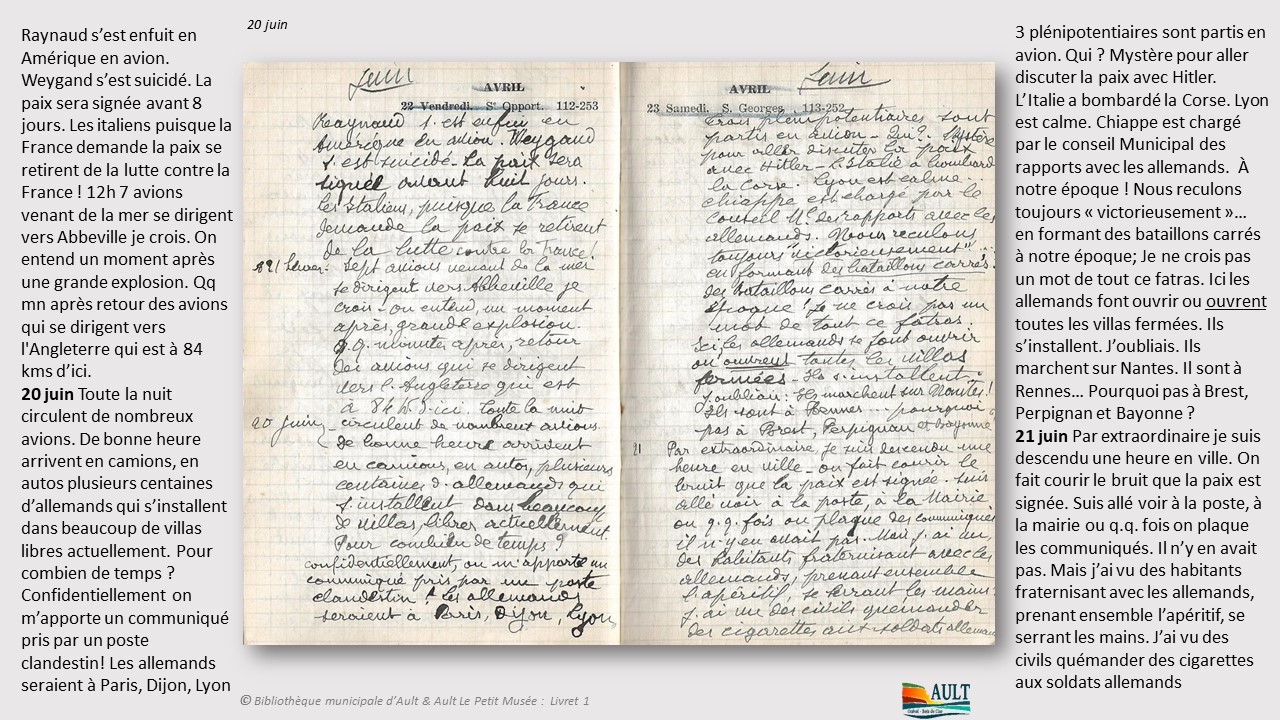 20 juin
Raynaud s’est enfuit en
Amérique en avion.
Weygand s’est suicidé. La
paix sera signée avant 8
jours. Les italiens puisque la
France demande la paix se
retirent de la lutte contre la
France ! 12h 7 avions
venant de la mer se dirigent
vers Abbeville je crois. On
entend un moment après
une grande explosion. Qq
mn après retour des avions
qui se dirigent vers
l'Angleterre qui est à 84
kms d’ici.
20 juin Toute la nuit
circulent de nombreux
avions. De bonne heure
arrivent en camions, en
autos plusieurs centaines
d’allemands qui s’installent
dans beaucoup de villas
libres actuellement. Pour
combien de temps ?
Confidentiellement on
m’apporte un communiqué
pris par un poste
clandestin! Les allemands
seraient à Paris, Dijon, Lyon
Juin
AVRIL
22 Vendredi. Sᵉ Opport. 112-253
Raynaud s'est enfui en
Amérique en avion. Weygand
s'est suicidé. La paix sera
signée avant huit jours.
Les Italiens, puisque la France
demande la paix se retirent
de la lutte contre la France!
sept avions venant de la mer
se dirigent vers Abbeville je
crois - on entend, un moment
après, grande explosion.
q.q. minutes après, retour
des avions qui se dirigent
vers l'Angleterre qui est
à 84 K. d'ici. Toute la nuit
20 juin circulent de nombreux avions.
De bonne heure arrivent
en camions, en autos, plusieurs
centaines d'allemands qui
s'installent dans beaucoup
de villas libres actuellement.
Pour combien de temps ?
confidentiellement, on m'apporte un
communiqué pris par un poste
clandestin ! Les allemands
seraient à Paris, Dijon, Lyon
Juin
AVRIL
23 Samedi. S. Georges. 113-252
Trois plénipotentiaires sont
partis en avion - Qui ? Mystère
pour aller discuter la paix
avec Hitler - L'Italie a bombardé
la Corse. Lyon est calme.
Chiappe est chargé par le
Conseil Mᵃˡ des rapports avec les
allemands. Nous reculons
toujours "victorieusement"...
en formant des bataillons carrés.
des bataillons carrés à notre
époque ! Je ne crois pas un
mot de tout ce fatras.
Ici les allemands se font ouvrir
ou ouvrent toutes les villas
fermées - Ils s'installent.
J'oubliais : Ils marchent sur Nantes !
Ils sont à Rennes... pourquoi
pas à Brest, Perpignan et Bayonne ?
21 Par extraordinaire, je suis descendu une
heure en ville - on fait courir le
bruit que la paix est signée. Suis
allé voir à la poste, à la Mairie
ou q.q. fois on plaque des communiqués
il n'y en avait pas. Mais j'ai vu
des habitants fraternisant avec les
allemands, prenant ensemble
l'apéritif, se serrant les mains.
J'ai vu des civils quémander
des cigarettes aux soldats allemands
3 plénipotentiaires sont partis en
avion. Qui ? Mystère pour aller
discuter la paix avec Hitler.
L’Italie a bombardé la Corse. Lyon
est calme. Chiappe est chargé
par le conseil Municipal des
rapports avec les allemands. À
notre époque ! Nous reculons
toujours « victorieusement »…
en formant des bataillons carrés
à notre époque; Je ne crois pas
un mot de tout ce fatras. Ici les
allemands font ouvrir ou ouvrent
toutes les villas fermées. Ils
s’installent. J’oubliais. Ils
marchent sur Nantes. Il sont à
Rennes… Pourquoi pas à Brest,
Perpignan et Bayonne ?
21 juin Par extraordinaire je suis
descendu une heure en ville. On
fait courir le bruit que la paix est
signée. Suis allé voir à la poste, à
la mairie ou q.q. fois on plaque
les communiqués. Il n’y en avait
pas. Mais j’ai vu des habitants
fraternisant avec les allemands,
prenant ensemble l’apéritif, se
serrant les mains. J’ai vu des
civils quémander des cigarettes
aux soldats allemands
© Bibliothèque municipale d’Ault & Ault Le Petit Musée : Livret 1
AULT